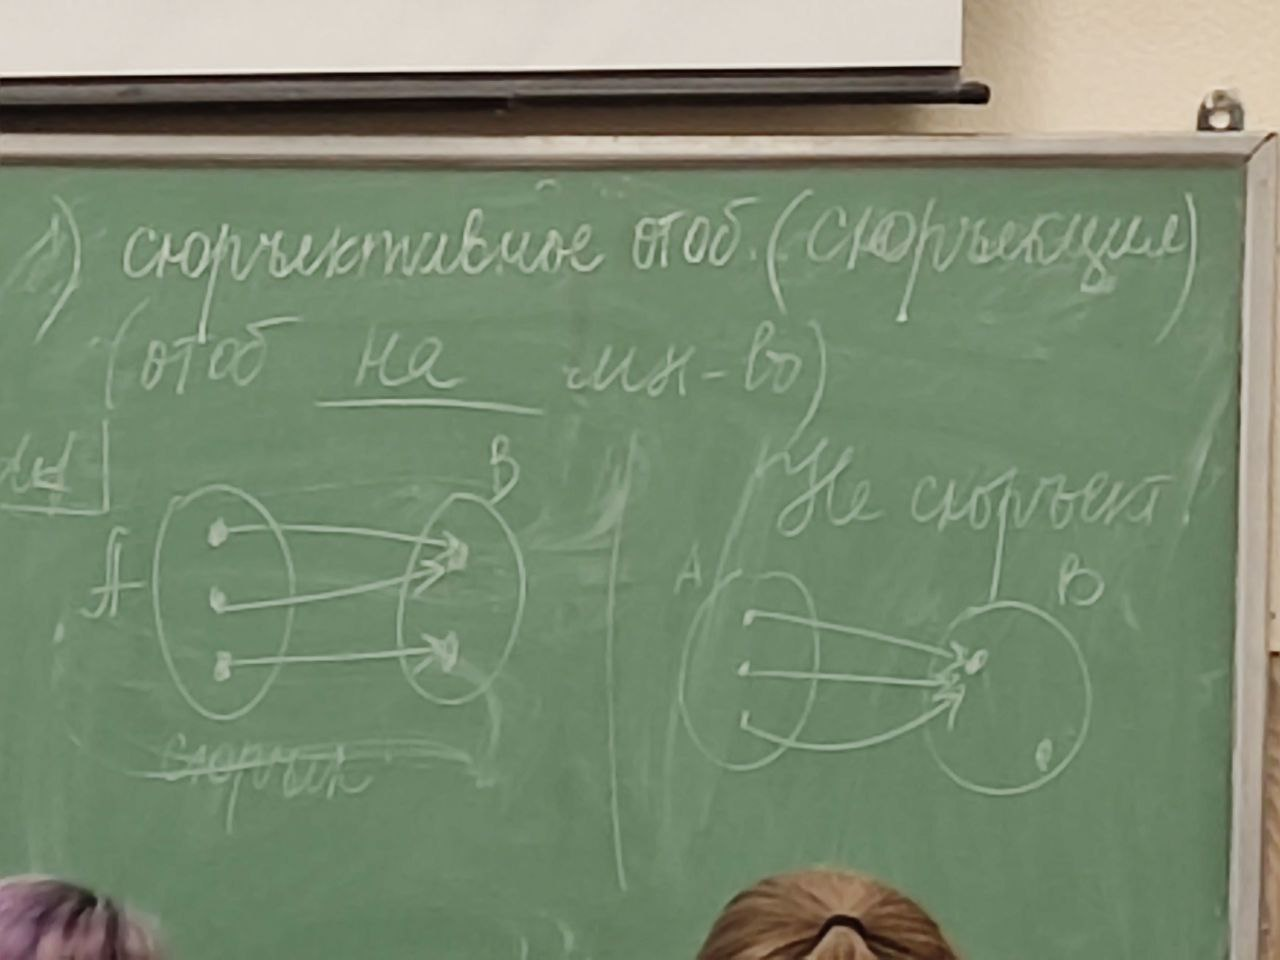 1) сюръективное отоб. (сюръекция)
(отоб на мн-во)
B
Не сюръект.
A
A
B
сюръек